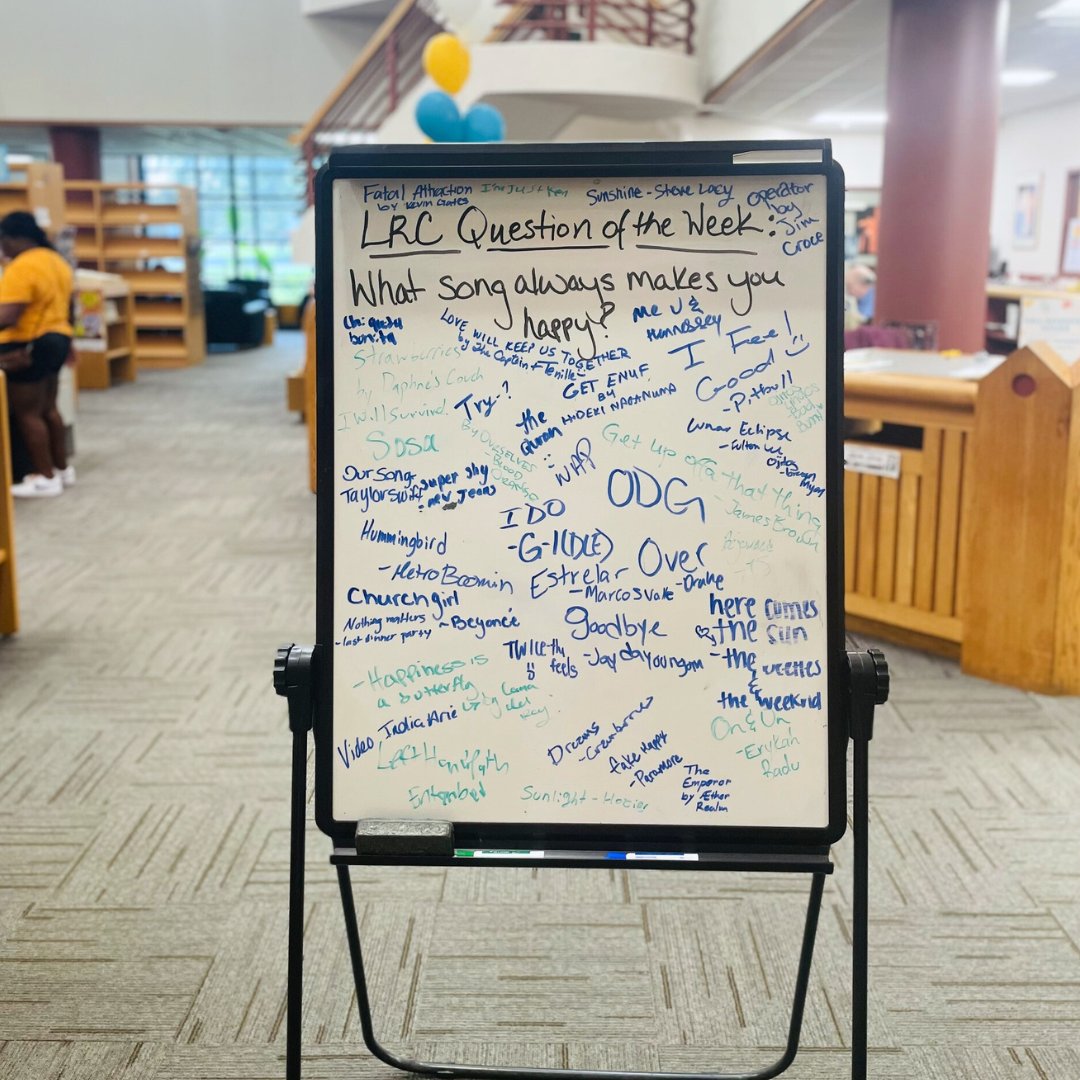 Fatal Attraction
by Kevin Gates
I'm Just Ken
Sunshine - Steve Lacy
operator
by
Jim
Croce
LRC Question of the Week:
What song always makes you
happy?
LOVE WILL KEEP US TOGETHER
by The Captain & Tenille
Me U &
Hennessey
I Feel
Good!
- Pitbull
Strawberries
by Daphne's Couch
I Will Survive
Try?
GET ENUF
BY
HIDEKI NAGANUMA
the
Quran
Sosa
BY OURSELVES
- BLOOD
ORANGE
WAP
Get up offa that thing
- James Brown
Lunar Eclipse
- Fulton Lee
Our Song
Taylor Swift
super shy
- new Jeans
ODG
I DO
- G-I(DLE)
Hummingbird
- Metro Boomin
Over
- Drake
Estrelar
- Marcos Vale
Church girl
- Beyoncé
Nothing matters
- last dinner party
goodbye
- Jay dayoungan
here comes
the sun
- the Beetles
&
the weeknd
TWICE the
feels
- Happiness is
a butterfly
by Lana
del
Rey
Video India Arie
On & On
- Erykah
Badu
Dreams
- Cranberries
fake happy
- Paramore
The
Emperor
by Æther
Realm
Entombed
Sunlight - Hozier